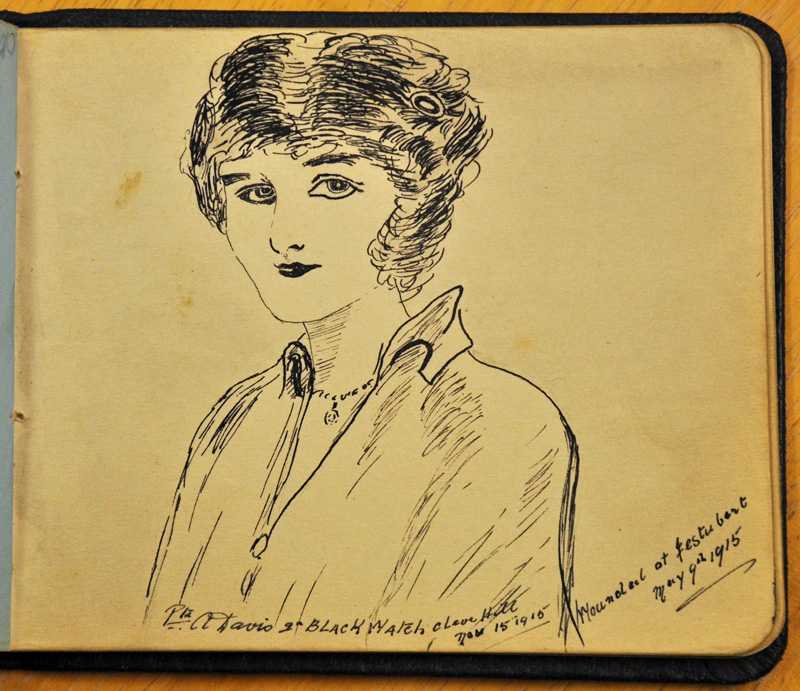 Pte A Davis 2nd BLACK WATCH Cleve Hill
Nov 15 1915
Wounded at Festubert
May 9th 1915